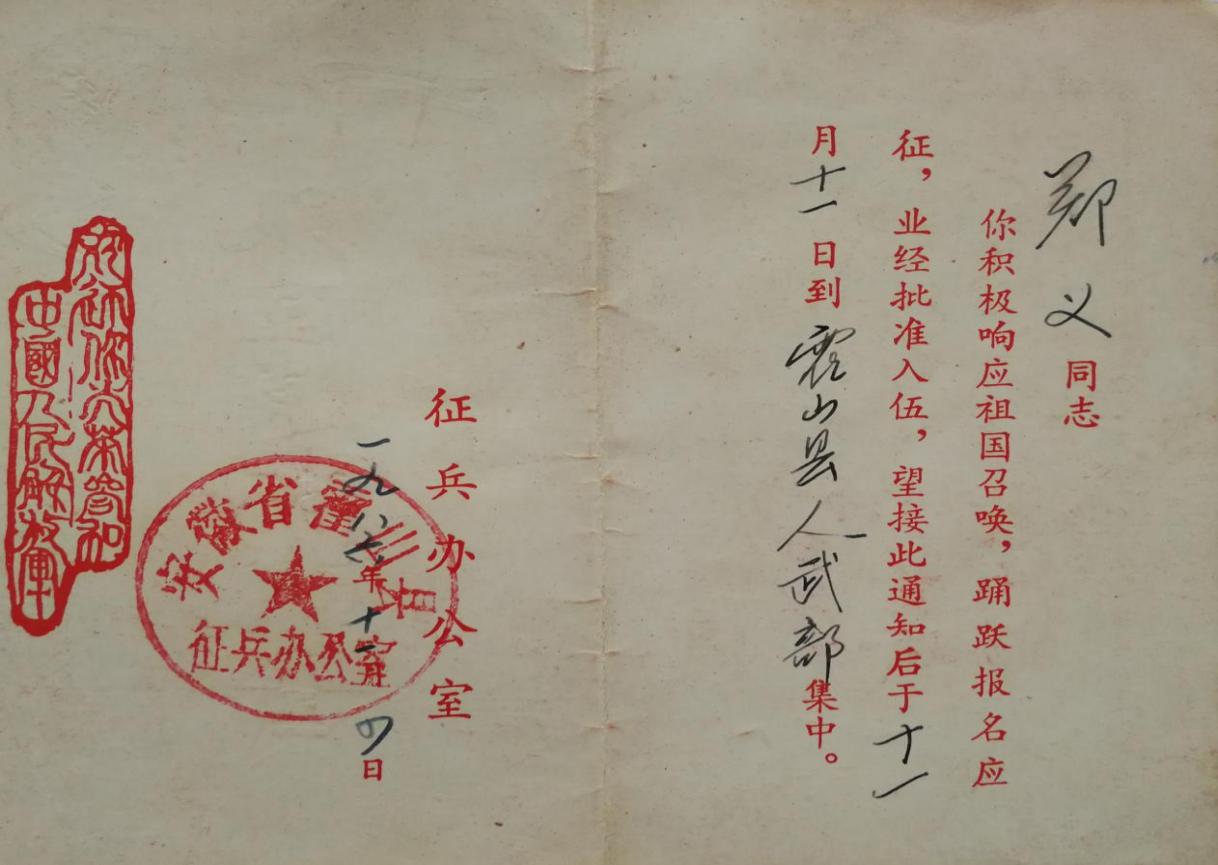 郑义同志
你积极响应祖国召唤，踊跃报名应
征，业经批准入伍，望接此通知后于十一
月十一日到霍山县人武部集中。
征兵办公室
一九八六年十一月四日
安徽省霍山县
征兵办公室
中國人民解放軍